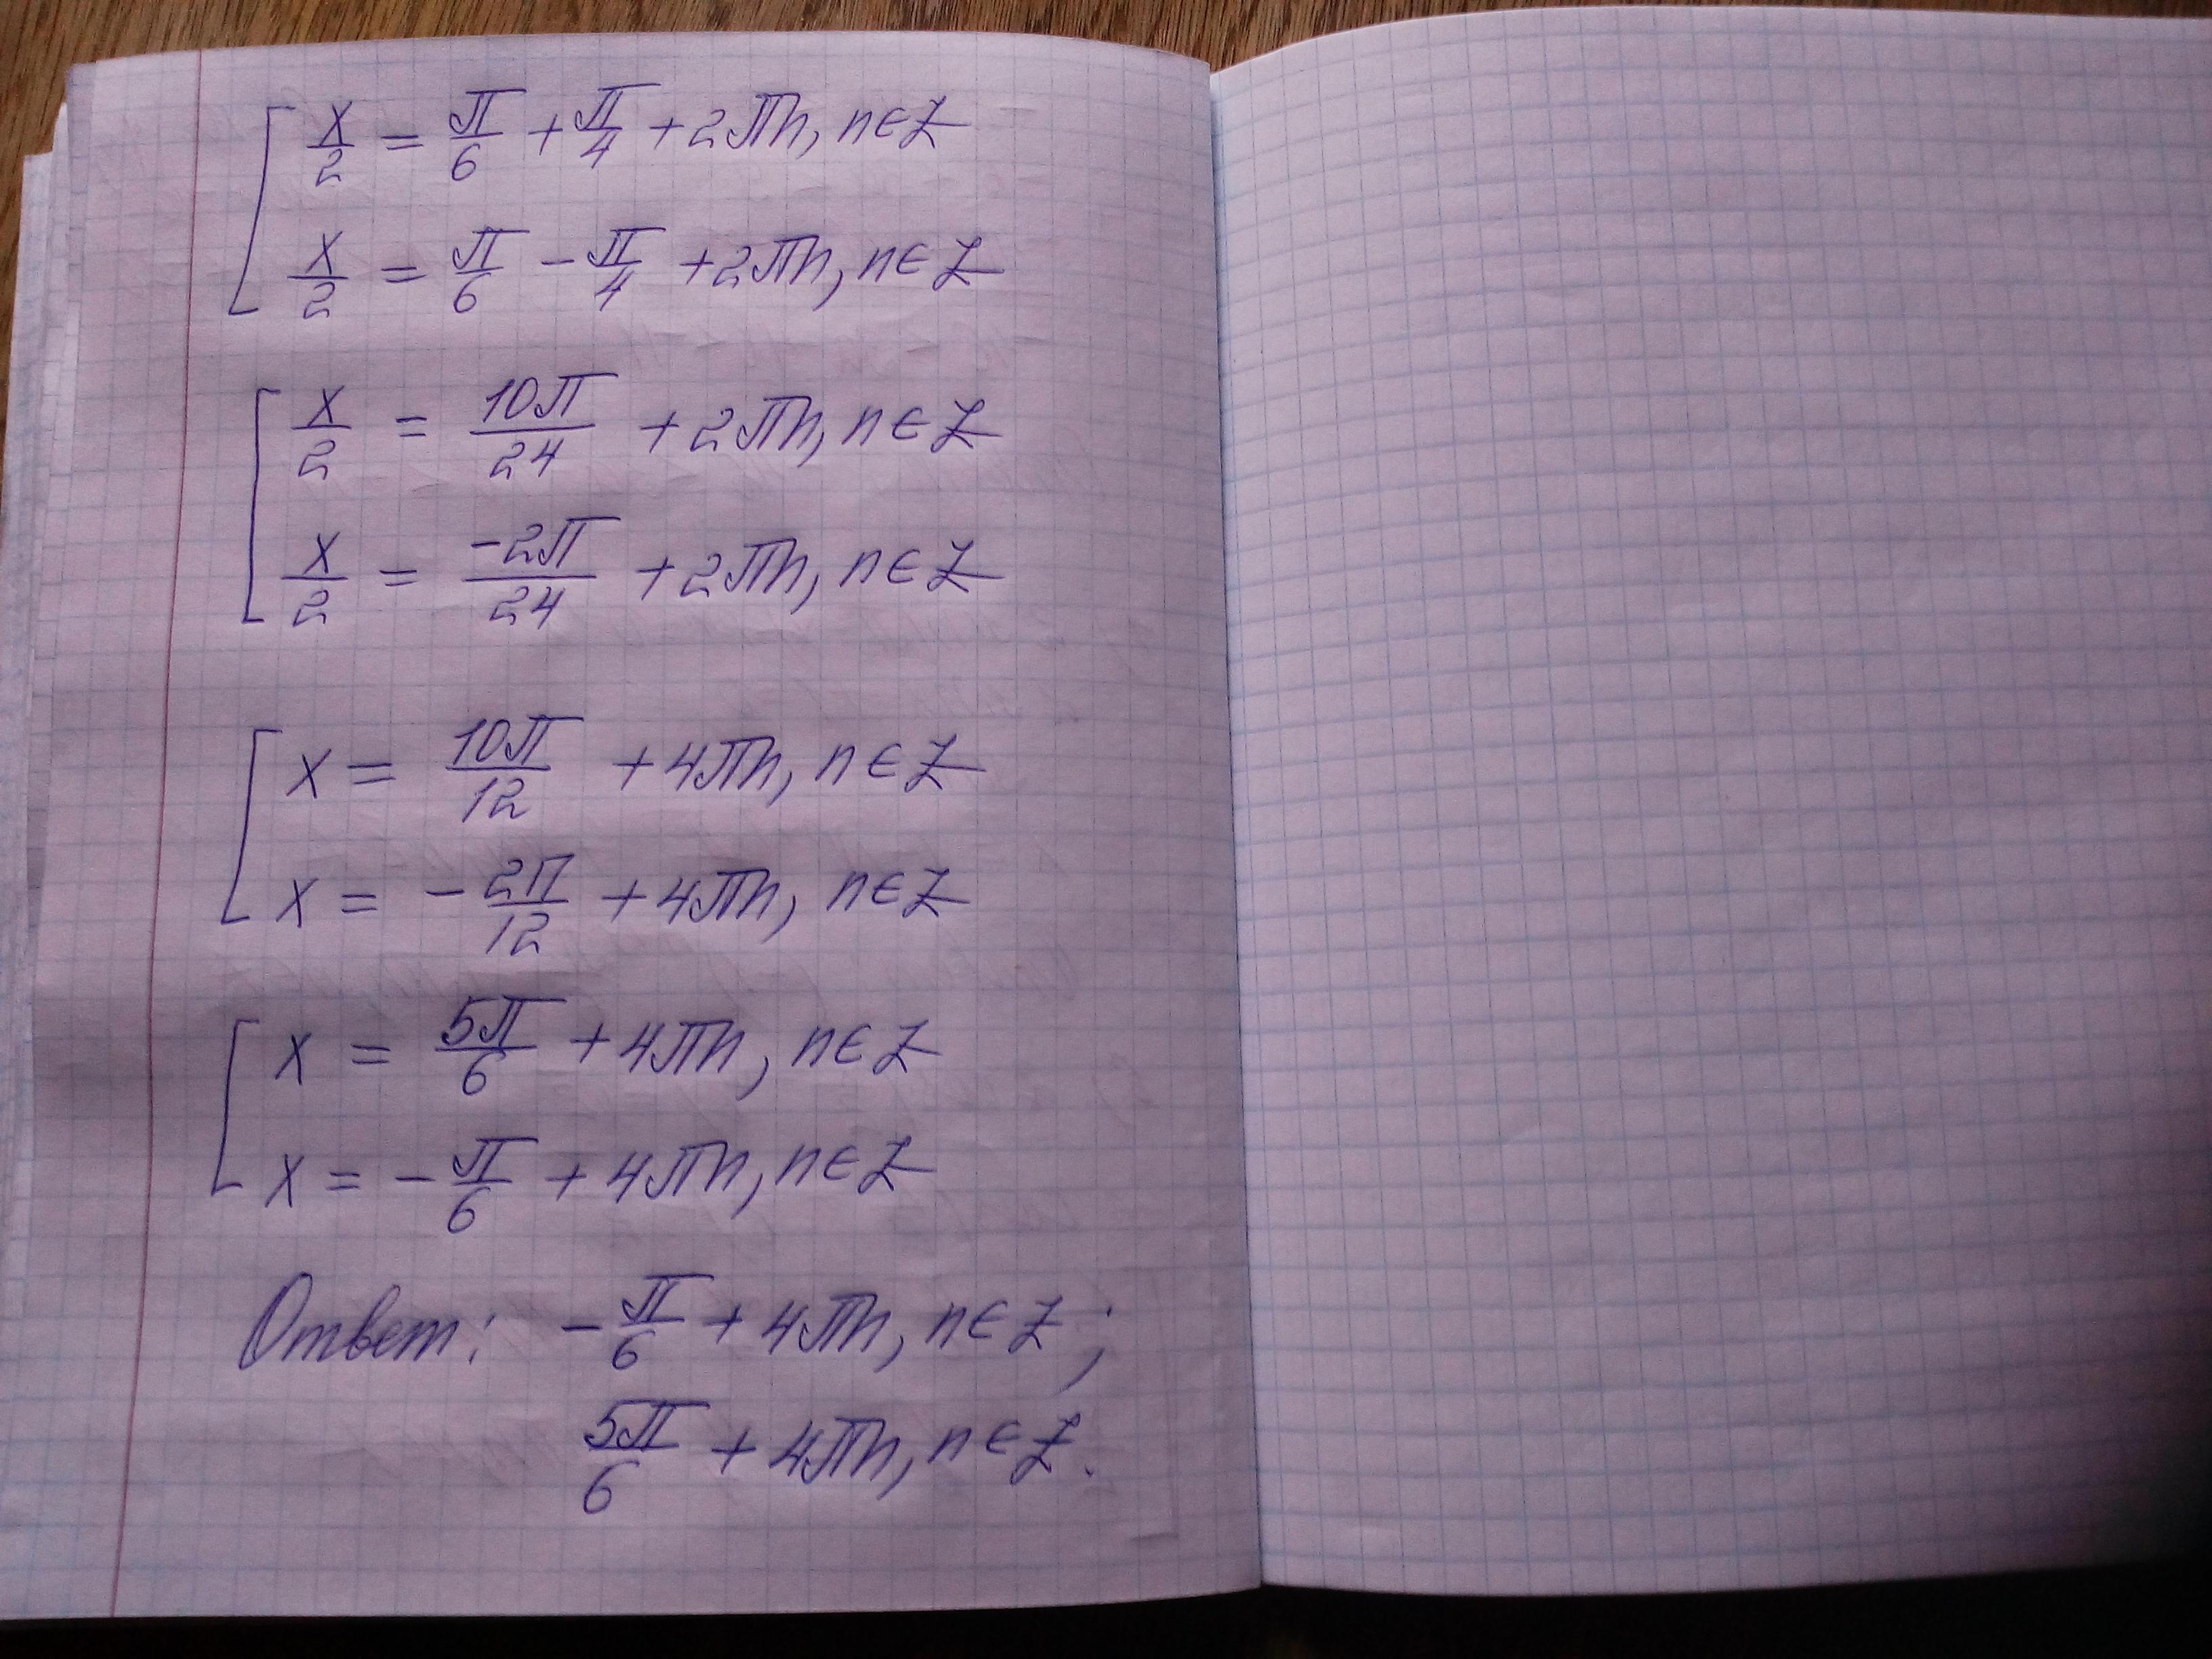 x/2 = π/6 + π/4 + 2πn, n∈Z
x/2 = π/6 - π/4 + 2πn, n∈Z
x/2 = 10π/24 + 2πn, n∈Z
x/2 = -2π/24 + 2πn, n∈Z
x = 10π/12 + 4πn, n∈Z
x = - 2π/12 + 4πn, n∈Z
x = 5π/6 + 4πn, n∈Z
x = - π/6 + 4πn, n∈Z
Ответ: - π/6 + 4πn, n∈Z;
5π/6 + 4πn, n∈Z.